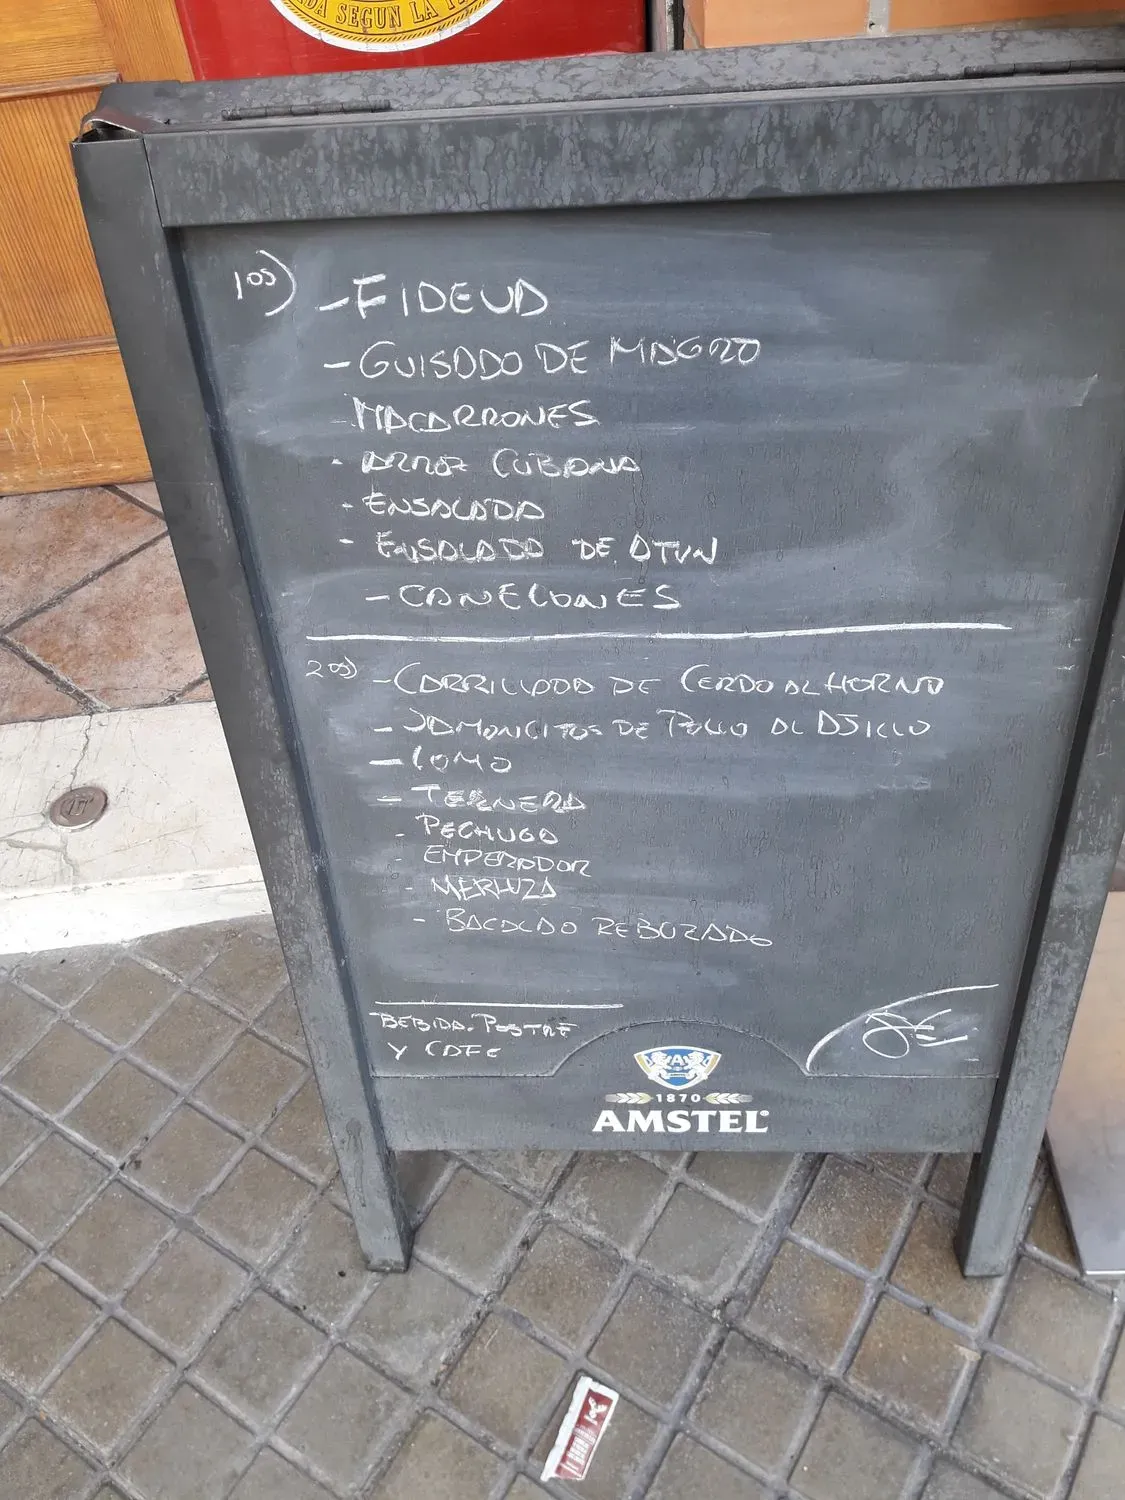 DA SEGUN LA
1os)
- FIDEUA
- GUISADO DE MAGRO
- MACARRONES
- ARROZ CUBANA
- ENSALADA
- ENSALADA DE ATUN
- CANELONES
2os)
- CARRILLADA DE CERDO AL HORNO
- JAMONCITOS DE POLLO AL AJILLO
- LOMO
- TERNERA
- PECHUGA
- EMPERADOR
- MERLUZA
- BACALAO REBOZADO
BEBIDA. POSTRE
Y CAFE
A
1870
AMSTEL